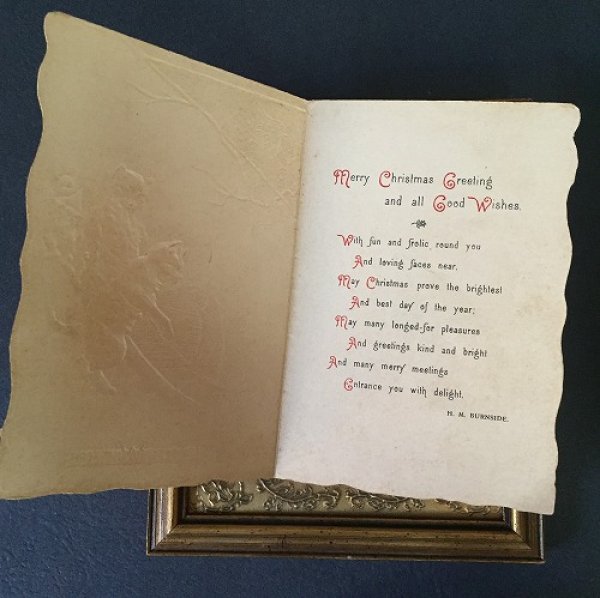 Merry Christmas Greeting
and all Good Wishes.
With fun and frolic round you
And loving faces near,
May Christmas prove the brightest
And best day of the year;
May many longed-for pleasures
And greetings kind and bright
And many merry meetings
Entrance you with delight.
H. M. BURNSIDE.